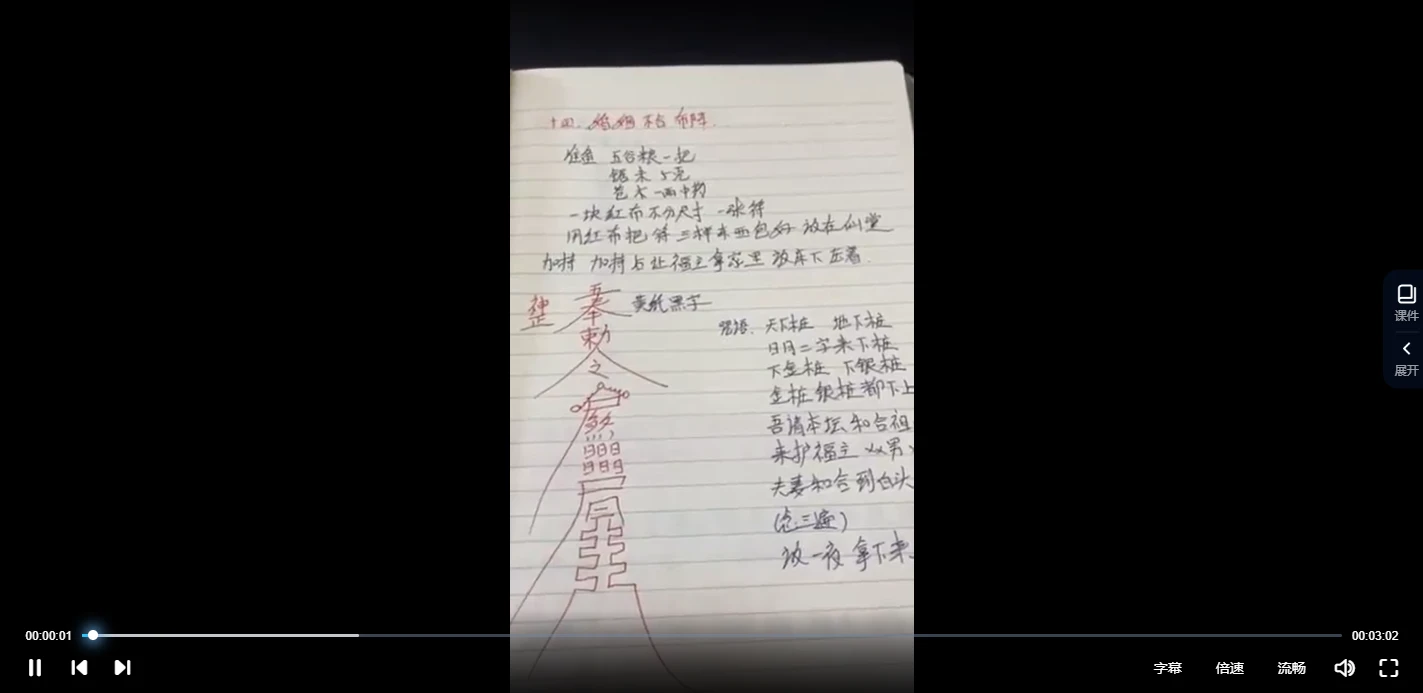 十四. 婚姻不合 布阵.
准备 五谷粮一把
锯末 5克
苍术 一两中药
一块红布不分尺寸 一张符
用红布把符三样东西包好 放在仙堂
加持 加持后让福主拿家里 放床下左着.
神
正
五
奉
勅
之
黄纸黑字
咒语. 天下桩 地下桩
日月二字来下桩
下金桩 下银桩
金桩银桩都下上
吾请本坛和合祖
来护福主 xx男
夫妻和合到白头
(念三遍)
放一夜 拿下来.
课件
展开
00:00:01
00:03:02
字幕 倍速 流畅